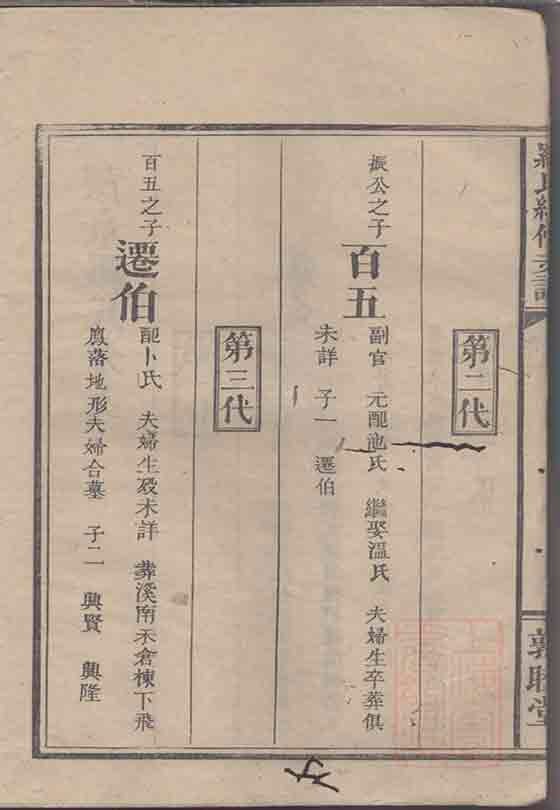 敦睦堂
第二代
振公之子 百五 副官 元配池氏 繼娶溫氏 夫婦生卒葬俱
未詳 子一 遷伯
第三代
百五之子 遷伯 配卜氏 夫婦生歿未詳 葬溪南禾倉棟下飛
鳳落地形夫婦合墓 子二 興賢 興隆